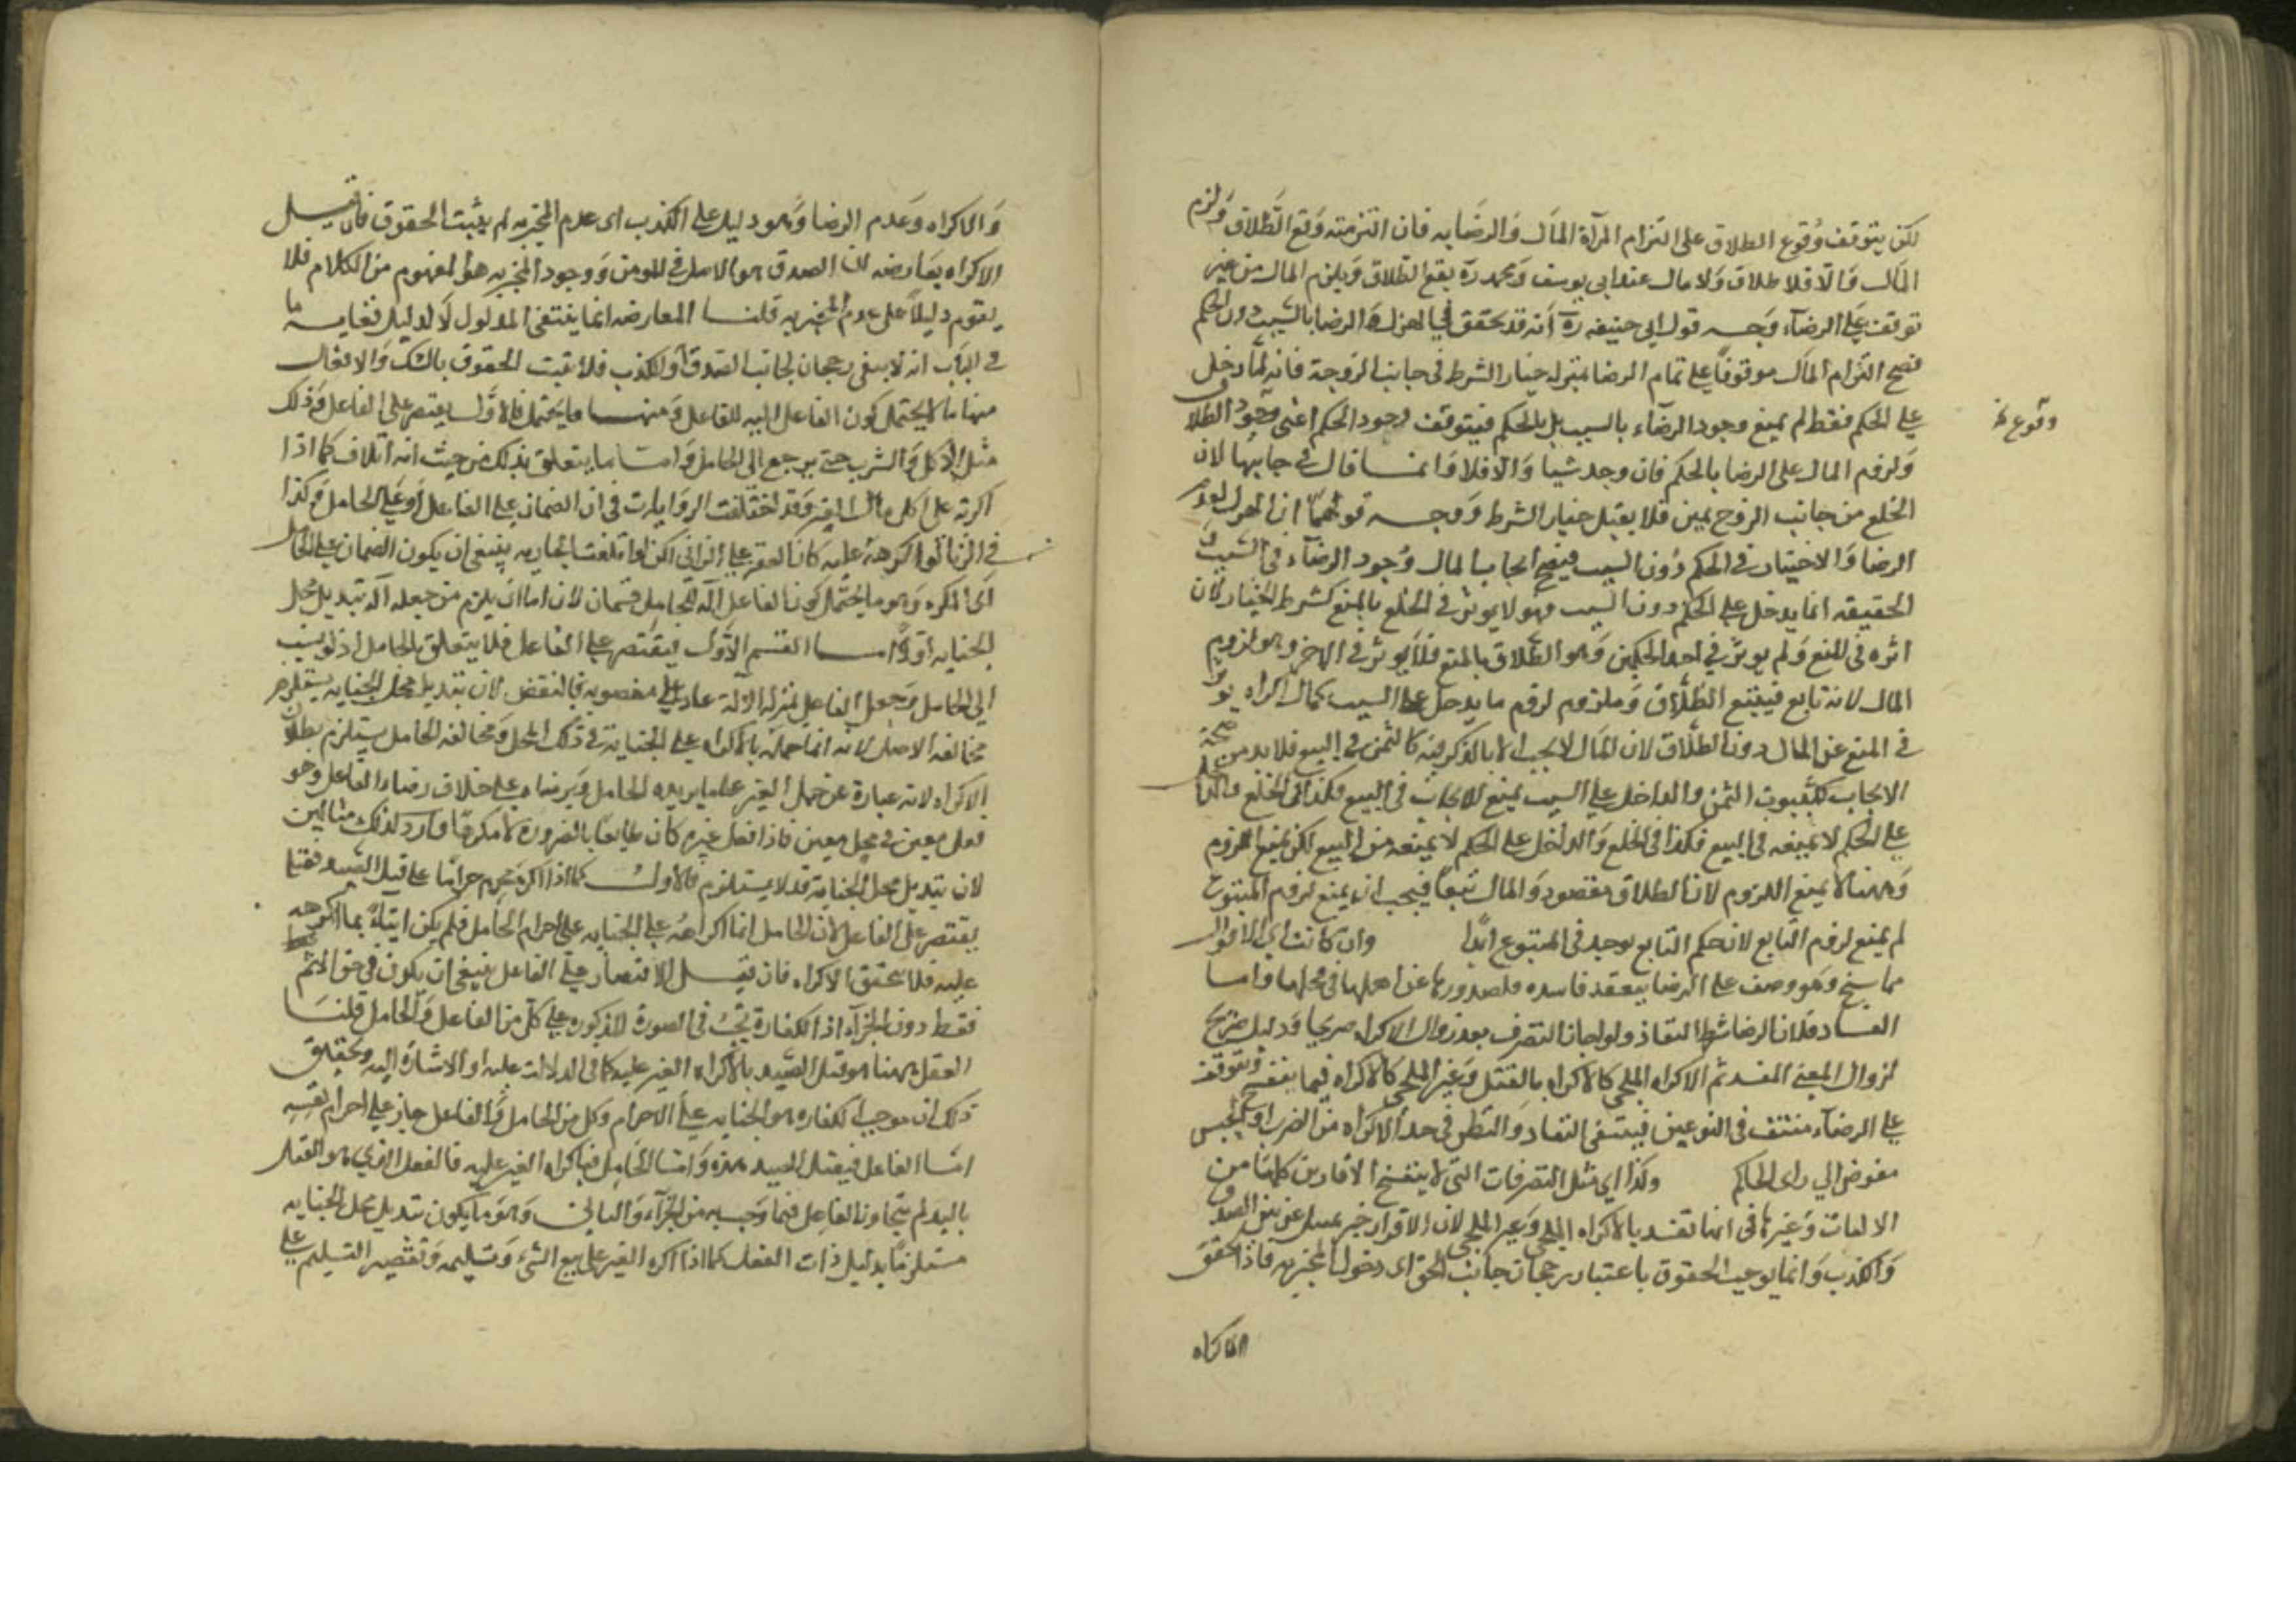 لكن يتوقف وقوع الطلاق على التزام المرآة المال والرضا به فان التزمته وقع الطلاق ولزم
المال والا فلا طلاق ولا مال عند ابي يوسف ومحمد ره يقع الطلاق ويلزم المال من غير
توقف على الرضاء وجه قول ابي حنيفه ره انه قد تحقق في الهزل الرضا بالسبب دون الحكم
فصح التزام المال موقوفا على تمام الرضا بمنزله خيار الشرط في جانب الزوجة فانه لما دخل
على الحكم فقط لم يمنع وجود الرضاء بالسبب بل بالحكم فيتوقف وجود الحكم اعني وجود الطلاق
وقوع
ولزوم المال على الرضا بالحكم فان وجد ثبتا والا فلا وانما قال في جانبها لان
الخلع من جانب الزوج يمين فلا يقبل خيار الشرط ووجه قولهما ان الهزل لعدم
الرضا والاختيار في الحكم دون السبب فيصح ايجاب المال وجود الرضاء في السبب
الحقيقه انما يدخل على الحكم دون السبب فهو لا يوثر في الخلع بالمنع كشرط الخيار لان
اثره في المنع ولم يوثر في احد الحكمين وهو الطلاق بالمنع فلا يوثر في الاخر وهو لزوم
المال لانه تابع فيتبع الطلاق وملزوم لزوم ما يدخل على السبب كمال اكراه يوثر
في المنع عن المال دون الطلاق لان المال لا يجب الا بالذكر فيه كالثمن في البيع فلا بد من صحة
الايجاب كثبوت الثمن والداخل على السبب يمنع الايجاب في البيع فكذا في الخلع والداخل
على الحكم لا يمنعه في البيع فكذا في الخلع والداخل على الحكم لا يمنعه من البيع لكن يمنع اللزوم
وههنا لا يمنع اللزوم لان الطلاق مقصود والمال تبعا فيجب ان يمنع لزوم المتبوع
لم يمنع لزوم التابع لان حكم التابع يوجد في المتبوع ابدا وان كانت اي الاقوال
مما يفسخ وهو وصف على الرضا ينعقد فاسده فلصدورها عن اهلها في محلها واما
الفساد فلان الرضا شرط النفاذ ولو اجاز التصرف بعد زوال الاكراه صريحا ودليل صح
لزوال المعنى المفسد ثم الاكراه الملجي كالاكراه بالقتل وغير الملجي كالاكراه فيما ينفسخ وتوقف
على الرضاء منتف في النوعين فينتفى النفاد والنظر في حد الاكراه من الضرب او الحبس
مفوض الي راى الحاكم وكذا اي مثل التصرفات التى لا ينفسخ الاقارير كلها من
الاثبات وغيرها في انها تفسد بالاكراه الملجي وغير الملجي لان الاقرار خبر يحتمل عن الصدق
والكذب وانما يوجب الحقوق باعتبار رجحان جانب الحق اى دخول المخبر به فاذا تحقق
الاكراه
والاكراه وعدم الرضا وهو دليل على الكذب اى عدم المخبر به لم يثبت الحقوق فان قيل
الاكراه يعارضه ان الصدق هو الاصل في المومن ووجود المخبر به هو المفهوم من الكلام فلا
يقوم دليلا على عدم المخبر به قلنا المعارضه انما ينتفى المدلول لا الدليل فغايه ما
في الباب انه لا يبقى رجحان لجانب الصدق او الكذب فلا تثبت الحقوق بالشك والافعال
منها ما لا يحتمل كون الفاعل اليه للفاعل ومنها ما يحتمل فالاول يقتصر على الفاعل وذلك
مثل الاكل والشرب حتى يرجع الى الحامل واما ما يتعلق بذلك من حيث انه اتلاف كما اذا
اكره على اكل مال الغير وقد اختلفت الروايات في ان الضمان على الفاعل او على الحامل وكذا
في الزنا لو اكرهه عليه كان العقر على الزاني لكن لو اتلفت الجاريه ينبغى ان يكون الضمان على الحامل
اى المكره وهو ما يحتمل كون الفاعل آلة للحامل قسمان لانه اما ان يلزم من جعله آلة تبديل محل
الجنايه او لا اما القسم الاول فيقتصر على الفاعل فلا يتعلق بالحامل اذ لو نسب
الى الحامل وجعل الفاعل بمنزله الالة عاد على مقصوده بالنقض لان تبديل محل الجنايه يستلزم
مخالفه الاصل لانه انما حمله بالاكراه على الجنايه في ذلك المحل ومخالفه الحامل يستلزم بطلان
الاكراه لانه عبارة عن حمل الغير على ما يريده الحامل ويرضاه على خلاف رضاء الفاعل وهو
فعل معين في محل معين فاذا فعل غيره كان طايعا بالضرورة لا مكرها وارد لذلك مثالين
لان تبديل محل الجناية قد لا يستلزم فالاول كما اذا اكره محرم حراما على قتل الصيد فقتله
يقتصر على الفاعل لان الحامل انما اكرهه على الجنايه على احرام الحامل فلم يكن اتيانه بما اكرهه
عليه فلا يتحقق الاكراه فان قيل الاقتصار على الفاعل ينبغى ان يكون في حق الاثم
فقط دون الجزاء اذ الكفارة تجب في الصورة المذكوره على كل من الفاعل والحامل قلنا
الفعل ههنا هو قتل الصيد بالاكراه الغير عليه كما في الدلالت عليه او الاشارة اليه وتحقيق
ذلك ان موجب الكفاره هو الجنايه على الاحرام وكل من الحامل والفاعل جان على احرام نفسه
اما الفاعل فيقتل الصيد بيده واما الحامل فباكراه الغير عليه فالفعل الذي هو القتل
باليد لم يتجاوز الفاعل فيما وجب به من الجزآء والثاني وهو ما يكون تبديل محل الجنايه
مستلزما بدليل ذات الفعل كما اذا اكره الغير على بيع الشئ وتسليمه وتقصير التسليم على